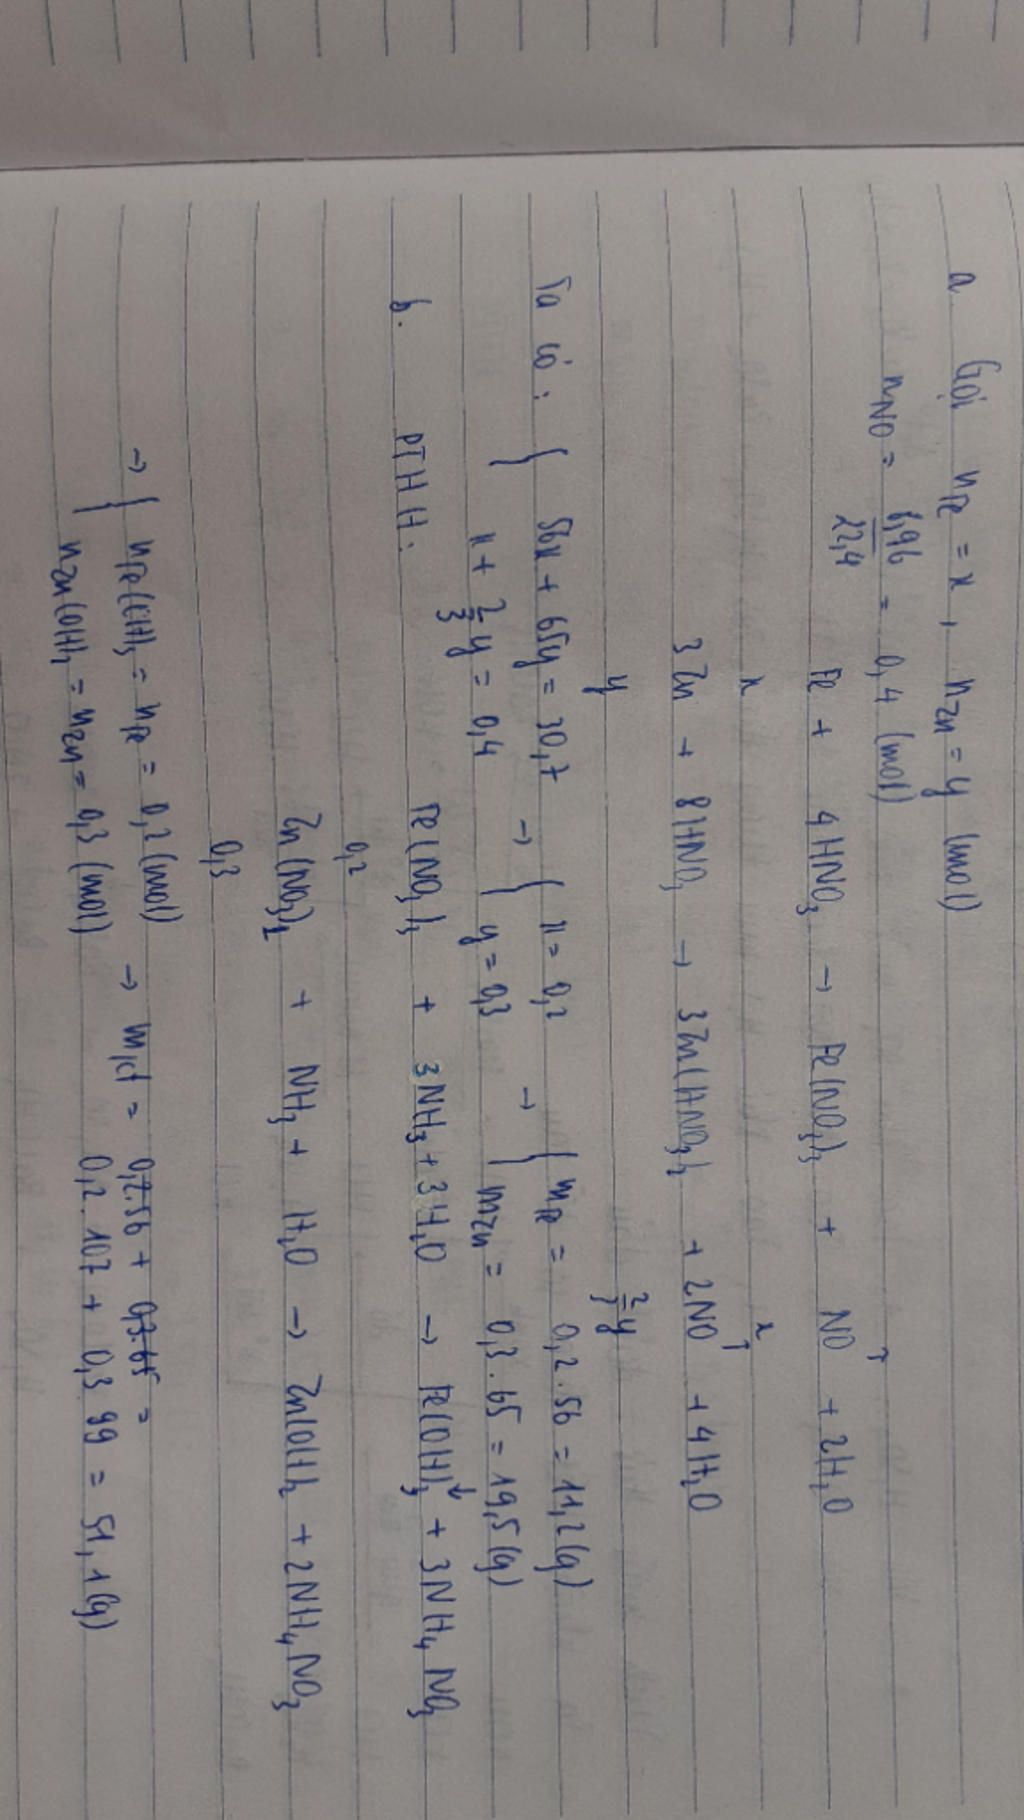 a. Gọi nFe = x, nZn = y (mol)
nNO = 8,96/22,4 = 0,4 (mol)
Fe + 4HNO3 → Fe(NO3)3 + NO↑ + 2H2O
x x
3Zn + 8HNO3 → 3Zn(HNO3)2 + 2NO↑ + 4H2O
y 2/3y
Ta có: { 56x + 65y = 30,7 → { x = 0,2 → { mFe = 0,2.56 = 11,2(g)
x + 2/3y = 0,4 y = 0,3 mZn = 0,3.65 = 19,5(g)
b. PTHH: Fe(NO3)3 + 3NH3 + 3H2O → Fe(OH)3↓ + 3NH4NO3
0,2
Zn(NO3)2 + NH3 + H2O → Zn(OH)2 + 2NH4NO3
0,3
→ { nFe(OH)3 = nFe = 0,2 (mol) → m↓ = 0,2.56 + 0,3.65 =
nZn(OH)2 = nZn = 0,3 (mol) 0,2.107 + 0,3.99 = 51,1(g)